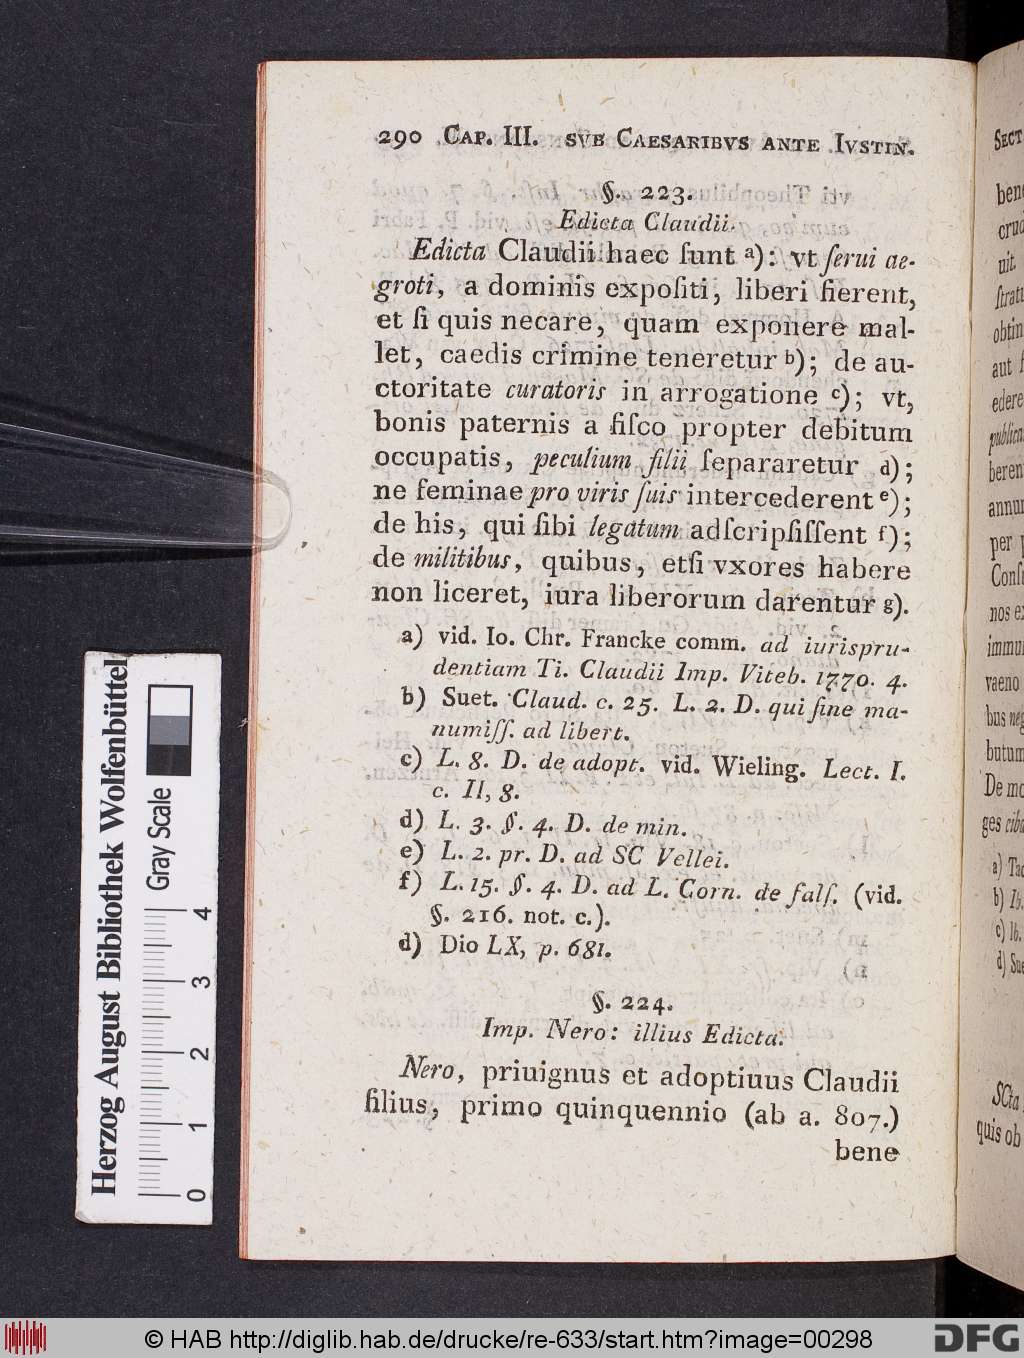 290 CAP. III. SVB CAESARIBVS ANTE IVSTIN.
§. 223.
Edicta Claudii.
Edicta Claudii haec ſunt a): vt ſerui ae-
groti, a dominis expoſiti, liberi fierent,
et ſi quis necare, quam exponere mal-
let, caedis crimine teneretur b); de au-
ctoritate curatoris in arrogatione c); vt,
bonis paternis a fiſco propter debitum
occupatis, peculium filii ſepararetur d);
ne feminae pro viris ſuis intercederent e);
de his, qui ſibi legatum adſcripſiſſent f);
de militibus, quibus, etſi vxores habere
non liceret, iura liberorum darentur g).
a) vid. Io. Chr. Francke comm. ad iurispru-
dentiam Ti. Claudii Imp. Viteb. 1770. 4.
b) Suet. Claud. c. 25. L. 2. D. qui ſine ma-
numiſſ. ad libert.
c) L. 8. D. de adopt. vid. Wieling. Lect. I.
c. II, 8.
d) L. 3. §. 4. D. de min.
e) L. 2. pr. D. ad SC Vellei.
f) L. 15. §. 4. D. ad L. Corn. de falſ. (vid.
§. 216. not. c.).
d) Dio LX, p. 681.
§. 224.
Imp. Nero: illius Edicta.
Nero, priuignus et adoptiuus Claudii
filius, primo quinquennio (ab a. 807.)
bene
SECT
bene
uit.
obtin
aut
edere
publica
beren
annu
per
Conſu
nos ex
immu
vaeno
bus neg
butum
De mo
ges ciba
a) Tac
b) Ib.
c) Ib.
d) Sue
SCta
quis ob
Herzog August Bibliothek Wolfenbüttel
Gray Scale
0 1 2 3 4
© HAB http://diglib.hab.de/drucke/re-633/start.htm?image=00298
DFG